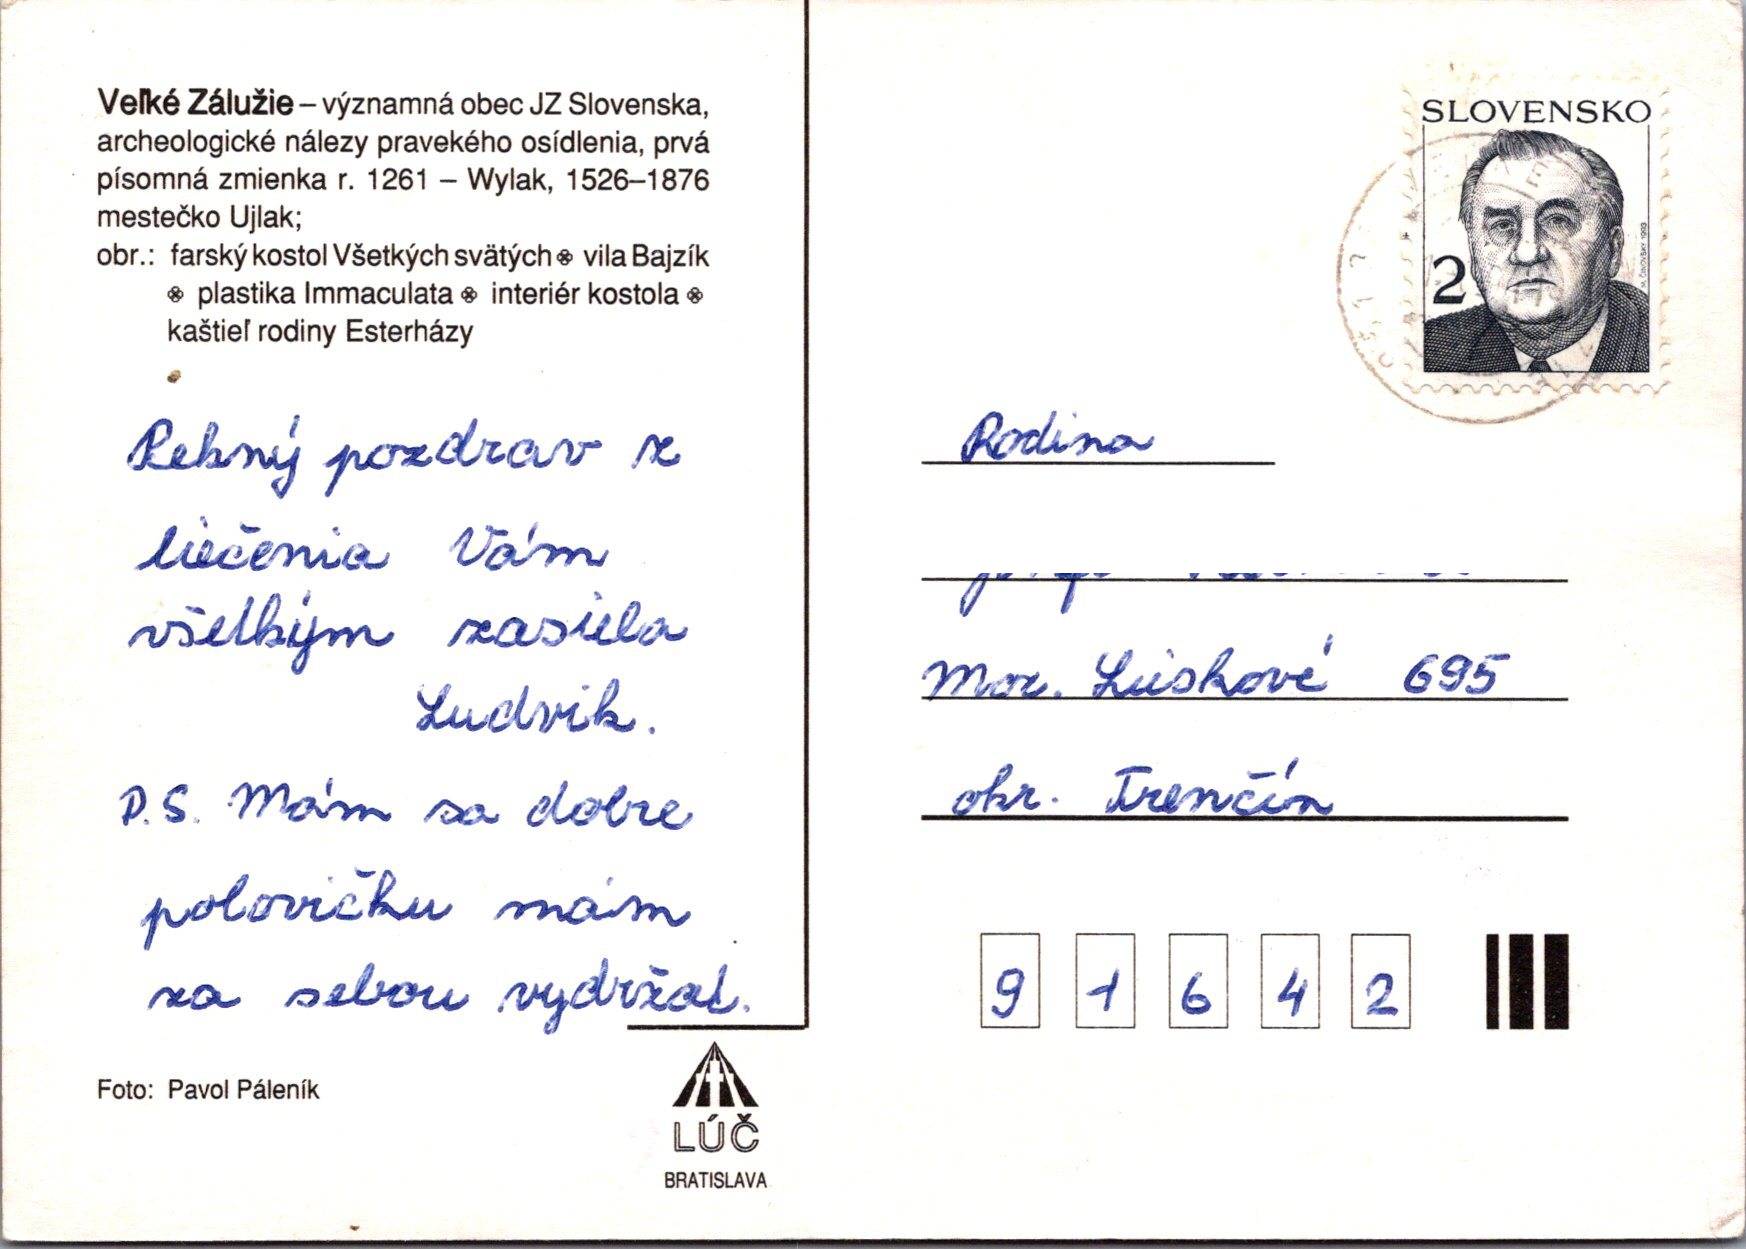 Veľké Zálužie – významná obec JZ Slovenska,
archeologické nálezy pravekého osídlenia, prvá
písomná zmienka r. 1261 – Wylak, 1526–1876
mestečko Ujlak;
obr.: farský kostol Všetkých svätých ❀ vila Bajzík
❀ plastika Immaculata ❀ interiér kostola ❀
kaštieľ rodiny Esterházy
Pekný pozdrav z
liečenia Vám
všetkým zasiela
Ludvik.
P.S. Mám sa dobre
polovičku mám
za sebou vydržať.
Foto: Pavol Páleník
LÚČ
BRATISLAVA
SLOVENSKO
2
M. ČINOVSKÝ 1993
Rodina
Mor. Lieskové 695
okr. Trenčín
9 1 6 4 2